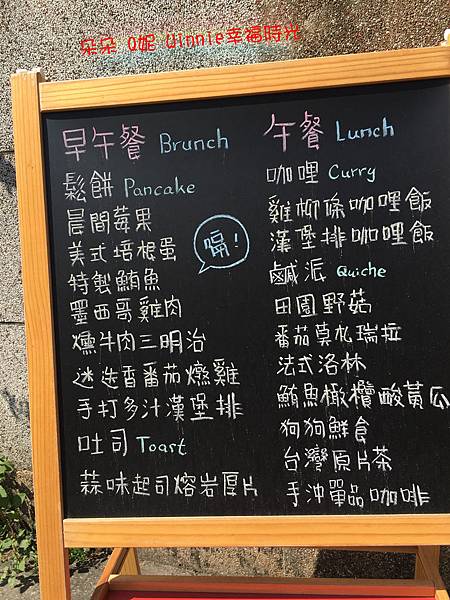 朵朵 Q妮 Winnie幸福時光
早午餐 Brunch
鬆餅 Pancake
晨間莓果
美式培根蛋
特製鮪魚
墨西哥雞肉
燻牛肉三明治
迷迭香番茄燉雞
手打多汁漢堡排
吐司 Toast
蒜味起司熔岩厚片
嗝!
午餐 Lunch
咖哩 Curry
雞柳條咖哩飯
漢堡排咖哩飯
鹹派 Quiche
田園野菇
番茄莫札瑞拉
法式洛林
鮪魚橄欖酸黃瓜
狗狗鮮食
台灣原片茶
手沖單品咖啡